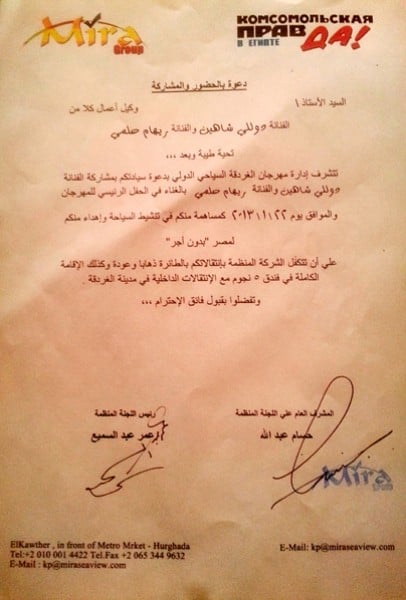 Mira
Group
КОМСОМОЛЬСКАЯ
ПРАВДА!
В ЕГИПТЕ
دعوة بالحضور والمشاركة
السيد الأستاذ / وكيل أعمال كلا من
الفنانة دوللي شاهين والفنانة ريهام حلمي
تحية طيبة وبعد ,,,
تتشرف إدارة مهرجان الغردقة السياحي الدولي بدعوة سيادتكم بمشاركة الفنانة
دوللي شاهين والفنانة ريهام حلمي بالغناء في الحفل الرئيسي للمهرجان
والموافق يوم ٢٠١٣/١/٢٢ كمساهمة منكم في تنشيط السياحة وإهداء منكم
لمصر "بدون أجر"
علي أن تتكفل الشركة المنظمة بإنتقالاتكم بالطائرة ذهابا وعودة وكذلك الإقامة
الكاملة في فندق ٥ نجوم مع الإنتقالات الداخلية في مدينة الغردقة .
وتفضلوا بقبول فائق الإحترام ,,,
المشرف العام علي اللجنة المنظمة رئيس اللجنة المنظمة
حسام عبد الله عمر عبد السميع
Mira
Group
ElKawther , in front of Metro Mrket - Hurghada
Tel:+2 010 001 4422 Tel.Fax +2 065 344 9632
E-Mail : kp@miraseaview.com
E-Mail: kp@miraseaview.com